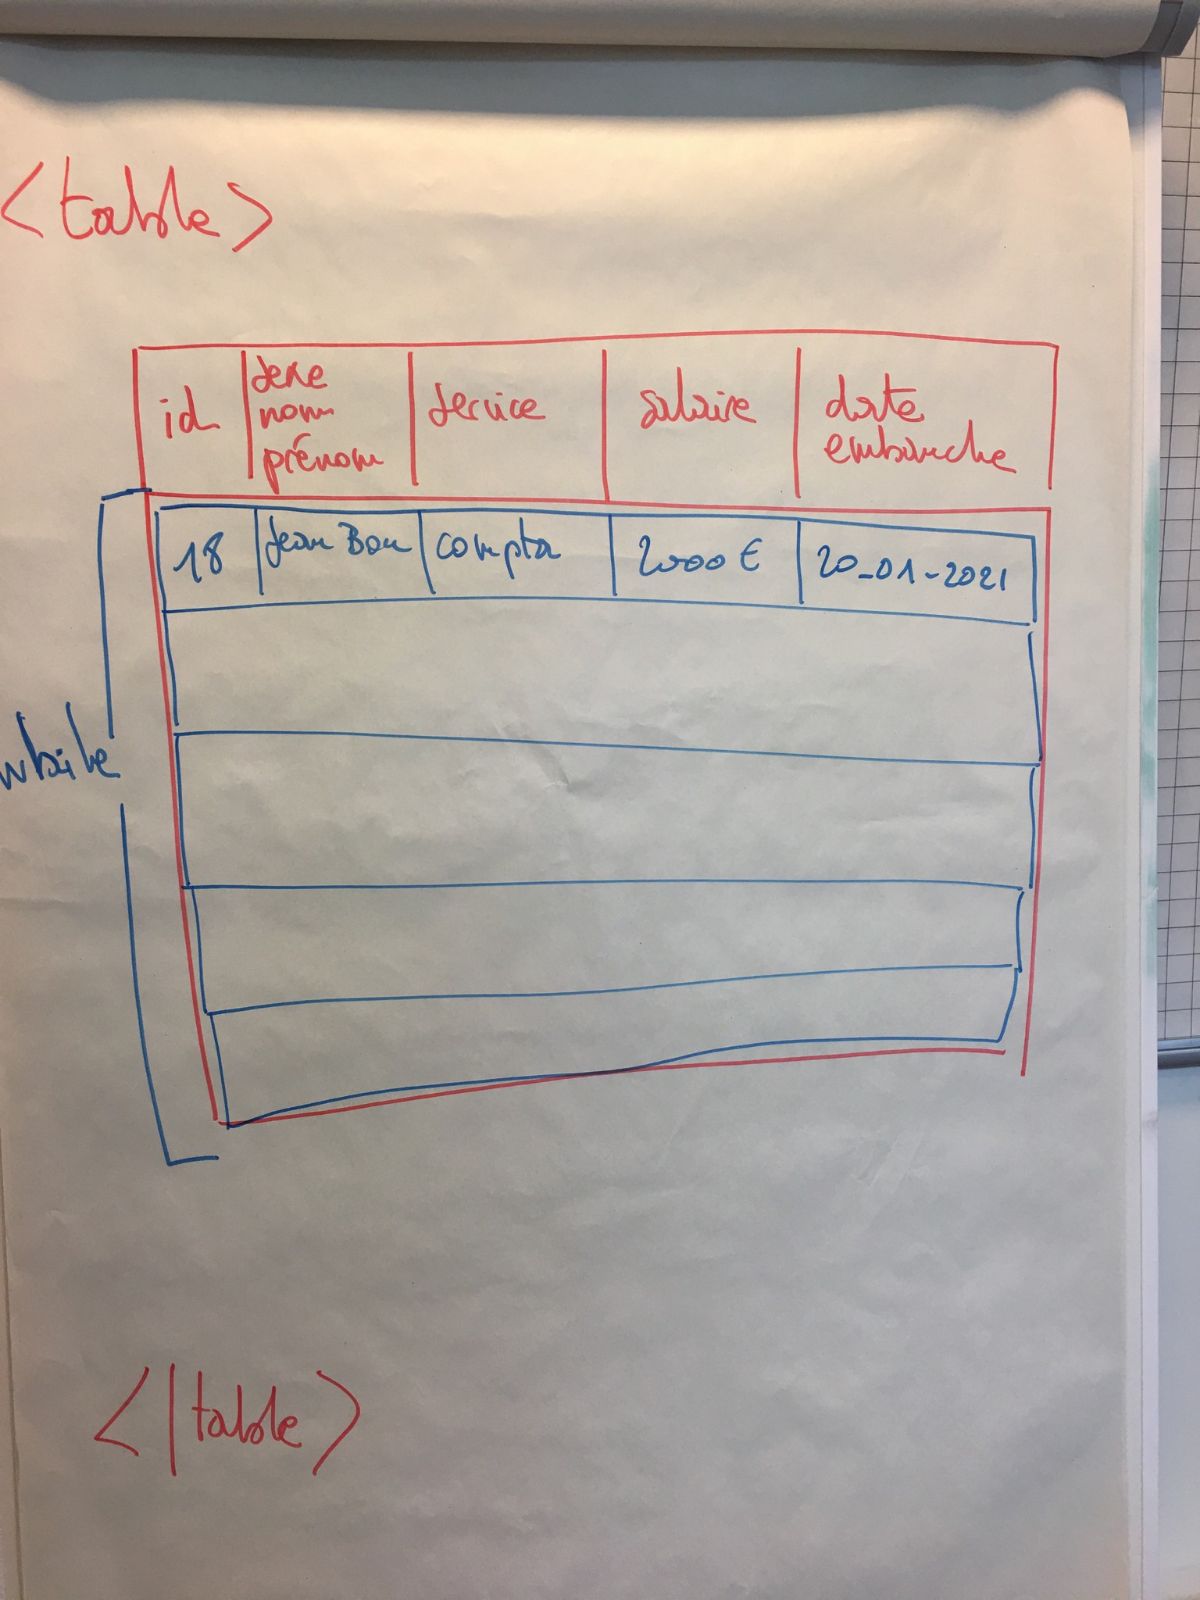 <table>
id
sexe
nom
prénom
service
salaire
date
embauche
18
Jean Bon
compta
2000 €
20-01-2021
while
</table>